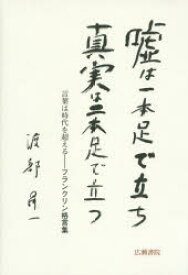 嘘は一本足で立ち
真実は二本足で立つ
言葉は時代を超える――フランクリン格言集
渡部昇一
広瀬書院